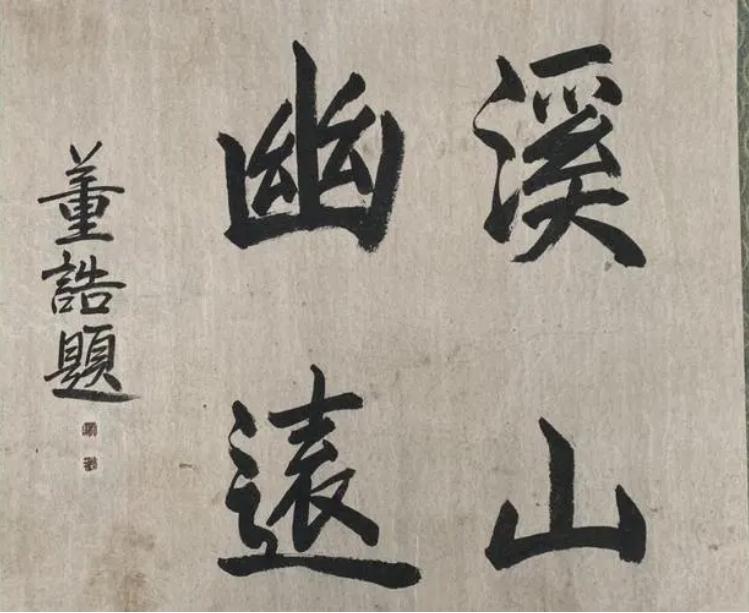 溪山
幽遠
董誥題